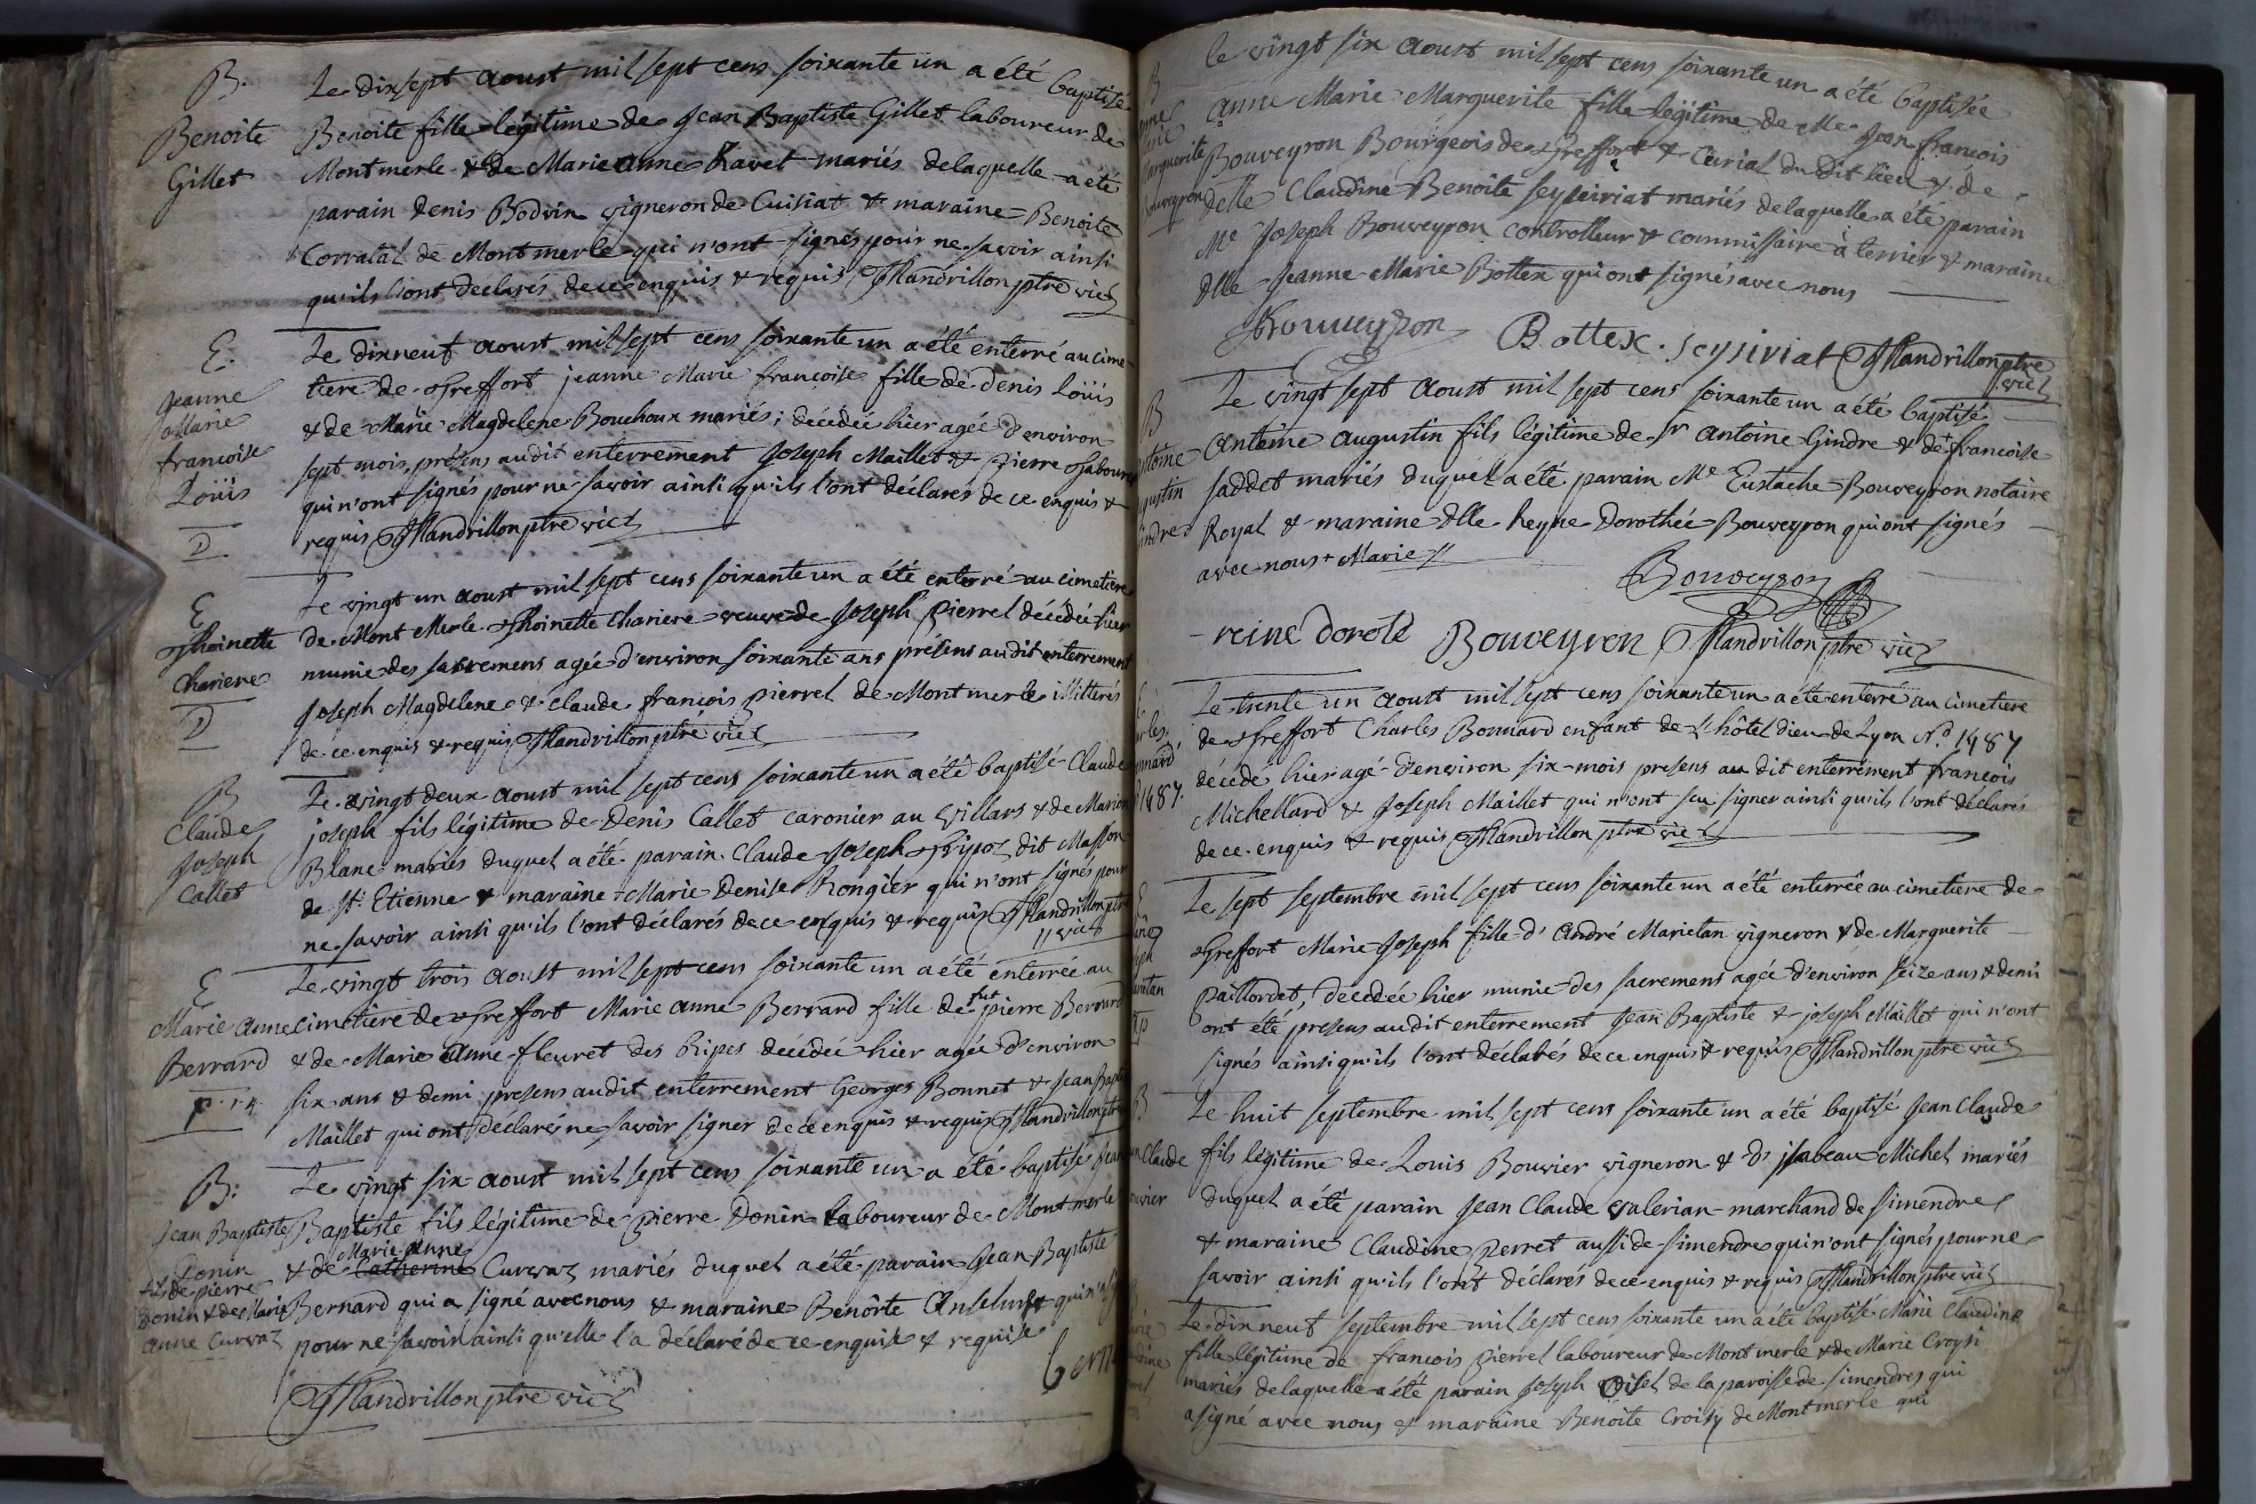 B.
Benoite
Gillet
Le dixsept aoust mil sept cens soixante un a été baptisé
Benoite fille légitime de Jean Baptiste Gillet laboureur de
Montmerle & de Marie anne Ravet mariés de laquelle a été
parain Denis Bodvin vigneron de Cuisiat & maraine Benoite
Corratal de Montmerle qui n'ont signés pour ne savoir ainsi
qu'ils l'ont declarés de ce enquis & requis Mandrillon ptre vic
E.
jeanne
Marie
francoise
Loüis
D
Le dixneuf aoust mil sept cens soixante un a été enterré au cime
tiere de Treffort jeanne Marie francoise fille de Denis Loüis
& de Marie Magdelene Bouchoux mariés; décédée hier agée d'environ
sept mois, présens audit enterrement Joseph Maillet & pierre
qui n'ont signés pour ne savoir ainsi qu'ils l'ont déclarés de ce enquis &
requis Mandrillon ptre vic
E
Thoinette
Chariere
D
Le vingt un aoust mil sept cens soixante un a été enterré au cimetiere
de Mont Merle Thoinette Chariere veuve de Joseph pierrel décédée hier
munie des sacremens agée d'environ soixante ans présens audit enterrement
Joseph Magdelene & Claude francois pierrel de Montmerle illitterés
de ce enquis & requis Mandrillon ptre vic
B
Claude
Joseph
Callet
Le vingt deux aoust mil sept cens soixante un a été baptisé Claude
joseph fils légitime de Denis Callet caronier au villars & de Marion
Blanc mariés duquel a été parain Claude Joseph dit Masson
de St. Etienne & maraine Marie Denise Rongier qui n'ont signés pour
ne savoir ainsi qu'ils l'ont déclarés de ce enquis & requis Mandrillon ptre
vic
E
Marie anne
Berrard
Le vingt trois aoust mil sept cens soixante un a été enterrée au
cimetiere de Treffort Marie anne Berrard fille de fut pierre Berrard
& de Marie anne fleuret des Ripes decedée hier agée d'environ
six ans & demi presens audit enterrement Georges Bonnet & Jean Bapt
Maillet qui ont déclarés ne savoir signer de ce enquis & requis Mandrillon ptre
B:
Jean Baptiste
Donin
fils de pierre
Donin & de Marie
anne Curvaz
Le vingt six aoust mil sept cens soixante un a été baptisé Jean
Baptiste fils légitime de pierre Donin laboureur de Montmerle
Marie anne
& de Catherine Curvaz mariés duquel a été parain Jean Baptiste
Bernard qui a signé avec nous & maraine Benôite qui n'a
pour ne savoir ainsi qu'elle l'a déclaré de ce enquise & requise
Mandrillon ptre vic
B
le vingt six aoust mil sept cens soixante un a été baptisée
anne Marie Marguerite fille légitime de Me Jean francois
Bouveyron Bourgeois de Treffort & curial du dit lieu & de
delle Claudine Benoite seysiriat mariés de laquelle a été parain
Me Joseph Bouveyron controlleur & commissaire à terrier & maraine
dlle Jeanne Marie Bottex qui ont signés avec nous
Bouveyron Bottex. seysiriat Mandrillon ptre
vic
B
Le vingt sept aoust mil sept cens soixante un a été baptisé
Antoine augustin fils légitime de Sr antoine Gindre & de + francoise
saddet mariés duquel a été parain Me Eustache Bouveyron notaire
Royal & maraine dlle Reyne Dorothée Bouveyron qui ont signés
avec nous + Marie //
Bouveyron
reine doroté Bouveyron Mandrillon ptre vic
Le trente un aoust mil sept cens soixante un a été enterré au cimetiere
de Treffort Charles Bonnard enfant de l'hôtel dieu de Lyon No. 1487
décédé hier agé d'environ six mois presens au dit enterrement francois
Michellard & Joseph Maillet qui n'ont seu signer ainsi qu'ils l'ont déclarés
de ce enquis & requis Mandrillon ptre vic
Le sept septembre mil sept cens soixante un a été enterrée au cimetiere de
Treffort Marie Joseph fille d' andré Marietan vigneron & de Marguerite
paillordet, decedée hier munie des sacremens agée d'environ seize ans & demi
ont été presens audit enterrement Jean Baptiste & joseph Maillet qui n'ont
signés ainsi qu'ils l'ont déclarés de ce enquis & requis Mandrillon ptre vic
B
Le huit septembre mil sept cens soixante un a été baptisé Jean Claude
fils légitime de Louis Bouvier vigneron & d' jsabeau Michel mariés
duquel a été parain Jean Claude valerian marchand de simendre
& maraine Claudine perret aussi de simendre qui n'ont signés pour ne
savoir ainsi qu'ils l'ont déclarés de ce enquis & requis Mandrillon ptre vic
Le dixneuf septembre mil sept cens soixante un a été baptisé Marie Claudine
fille légitime de francois pierrel laboureur de Montmerle & de Marie Croysi
mariés de laquelle a été parain Joseph de la paroisse de simendres qui
a signé avec nous & maraine Benoite Croisy de Montmerle qui